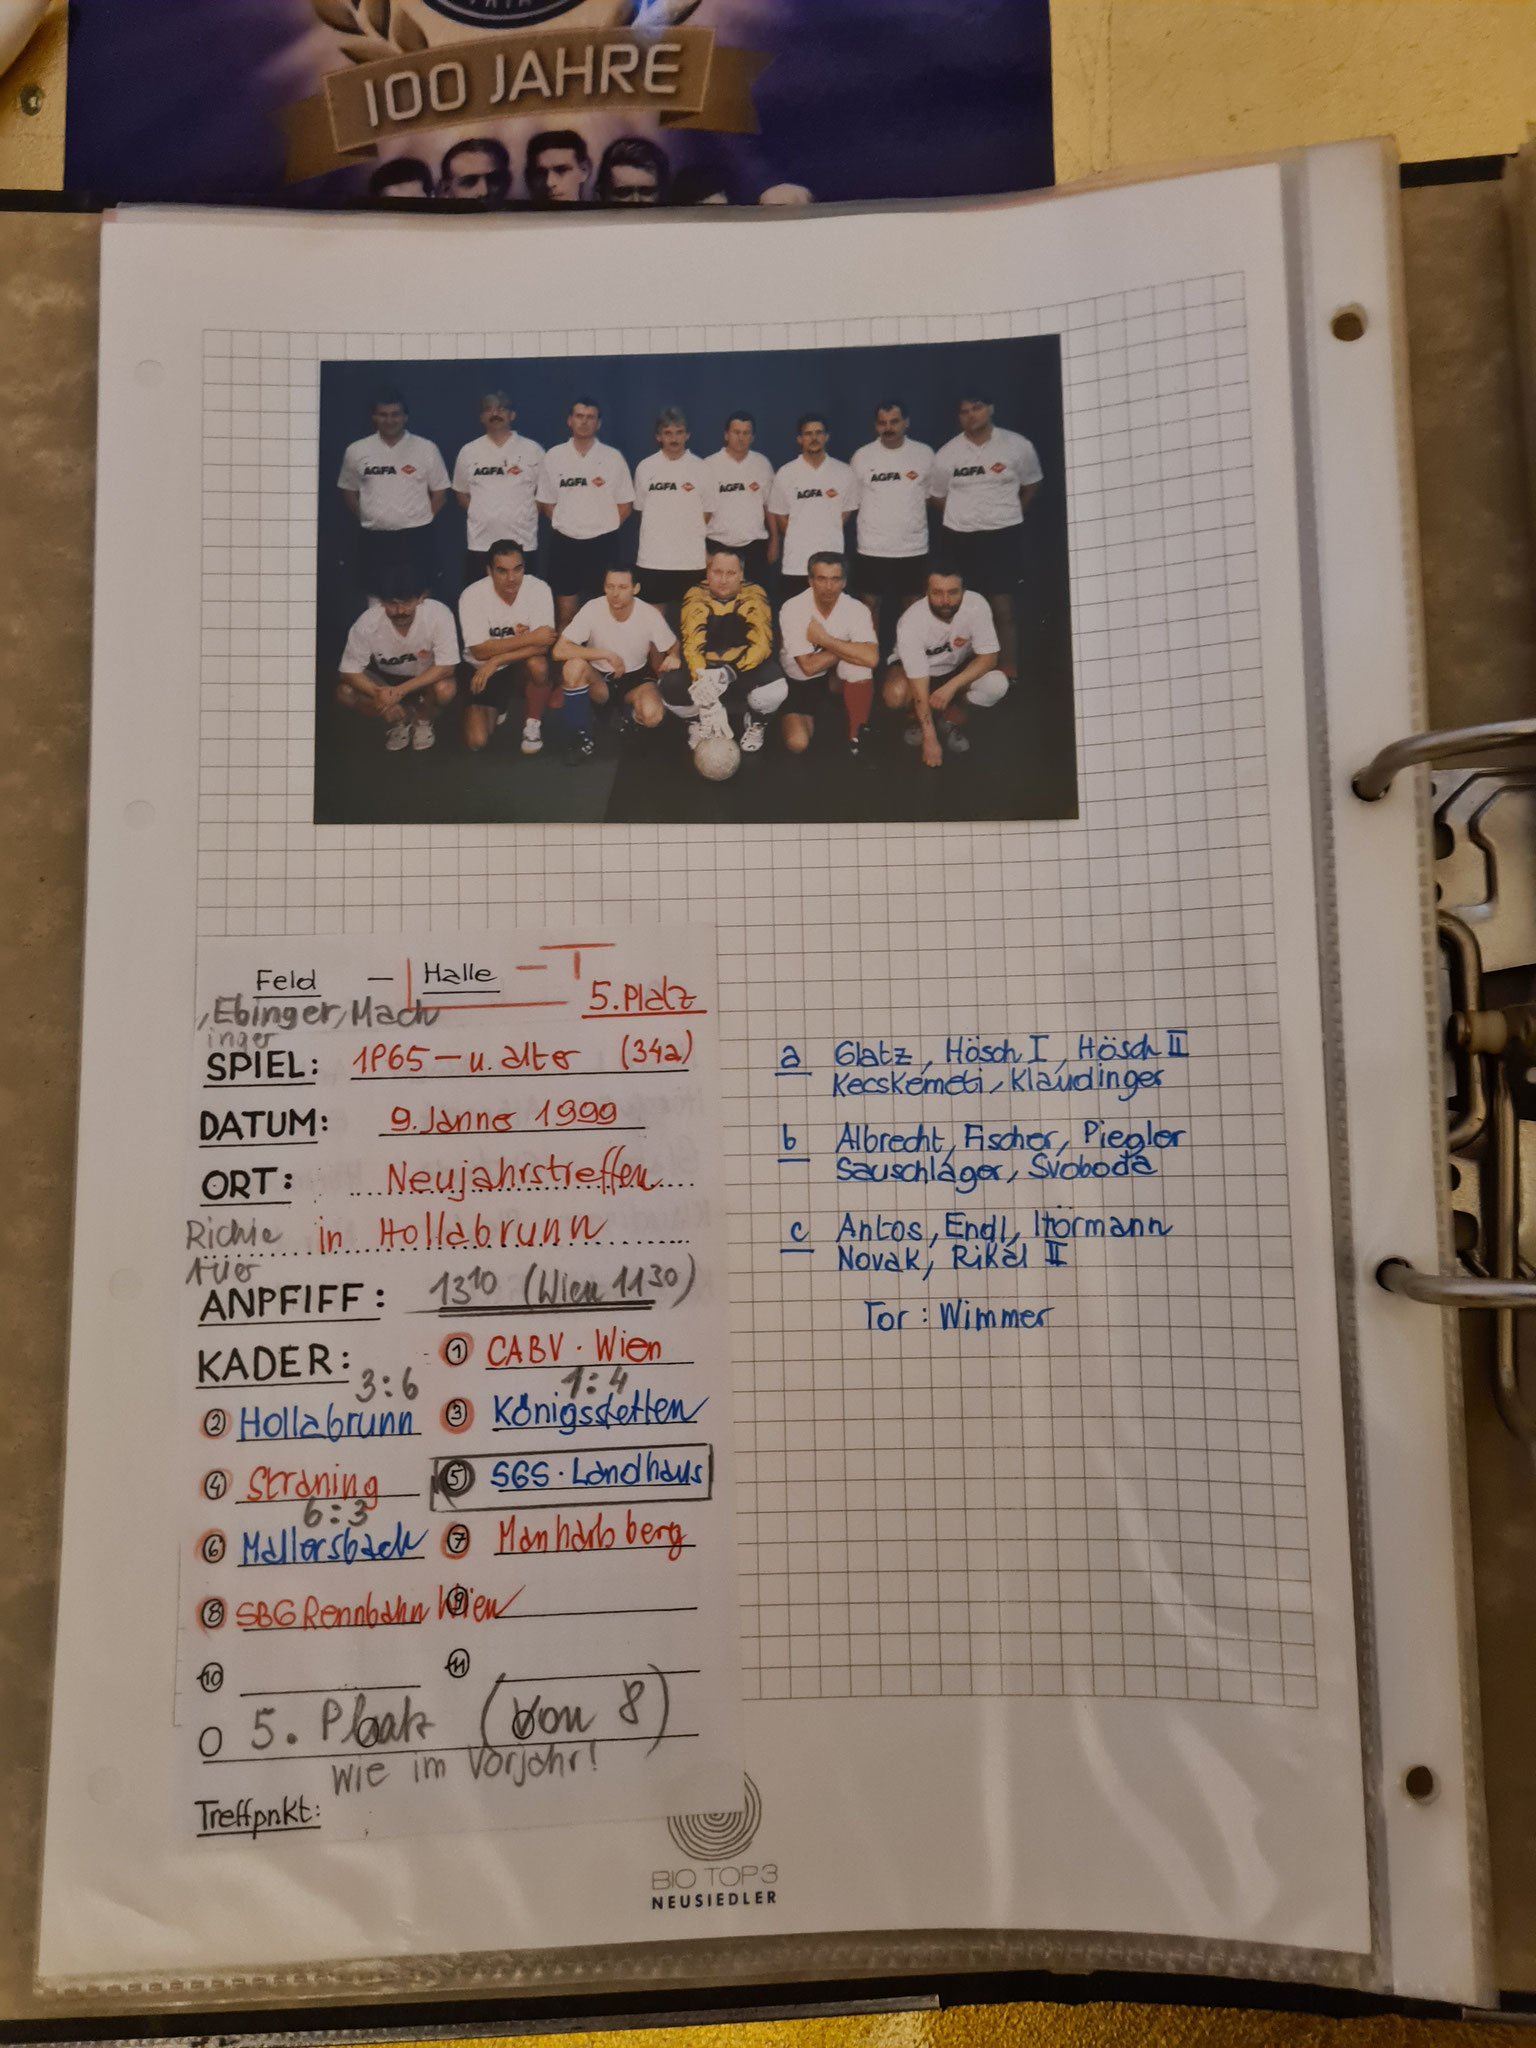 100 JAHRE
AGFA AGFA AGFA AGFA AGFA AGFA AGFA AGFA
AGFA AGFA AGFA
Feld - Halle - T
5. Platz
, Ebinger, Mach
inger
SPIEL: 1965 - u. älter (34a)
DATUM: 9. Jänner 1999
ORT: Neujahrstreffen
Richie in Hollabrunn
für
ANPFIFF: 13 10 (Wien 11 30)
KADER: 1 CABV. Wien
3:6 1:4
2 Hollabrunn 3 Königsstetten
4 Straning 5 SGS. Landhaus
6:3
6 Mallersbach 7 Manhartsberg
8 SBG Rennbahn Wien 9
10 11
5. Platz (von 8)
Wie im Vorjahr!
Treffpnkt:
a Glatz, Hösch I, Hösch II
Kecskemeti, Klaudinger
b Albrecht, Fischer, Piegler
Sauschlager, Svoboda
c Antos, Endl, Hörmann
Novak, Rikal II
Tor: Wimmer
BIO TOP 3
NEUSIEDLER